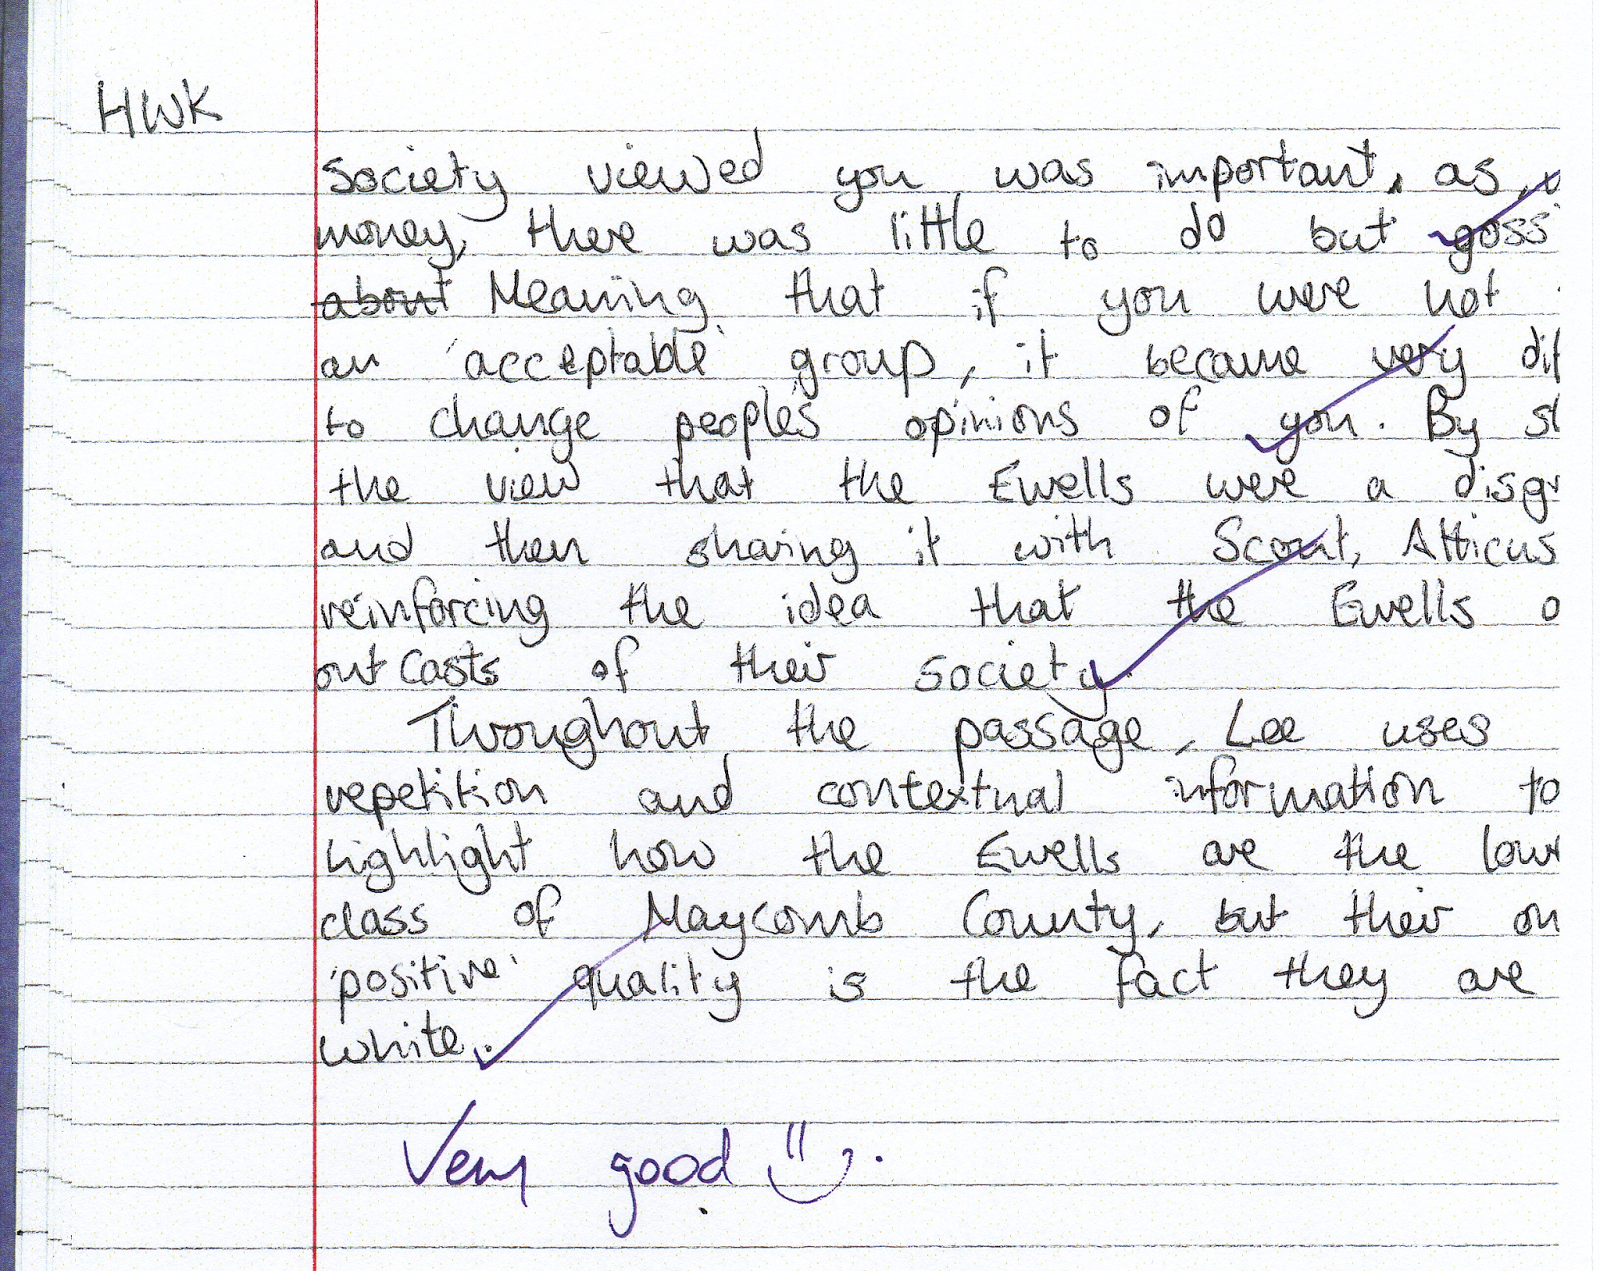 HWK
society viewed you was important, as,
money, there was little to do but goss
about Meaning that if you were not
an 'acceptable' group, it became very dif
to change people's opinions of you. By sh
the view that the Ewells were a disgr
and then sharing it with Scout, Atticus
reinforcing the idea that the Ewells
outcasts of their society.
Throughout the passage, Lee uses
repetition and contextual information to
highlight how the Ewells are the low
class of Maycomb County, but their on
'positive' quality is the fact they are
white.
Very good